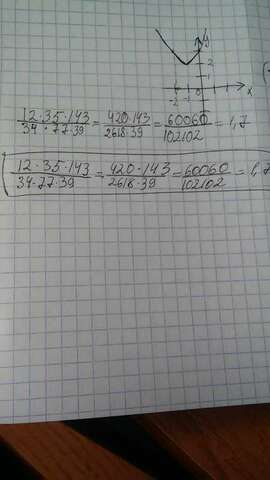 y
2
1
-2 -1 0 x
12·35·143/34·77·39 = 420·143/2618·39 = 60060/102102 = 1,7
12·35·143/34·77·39 = 420·143/2618·39 = 60060/102102 = 1,7